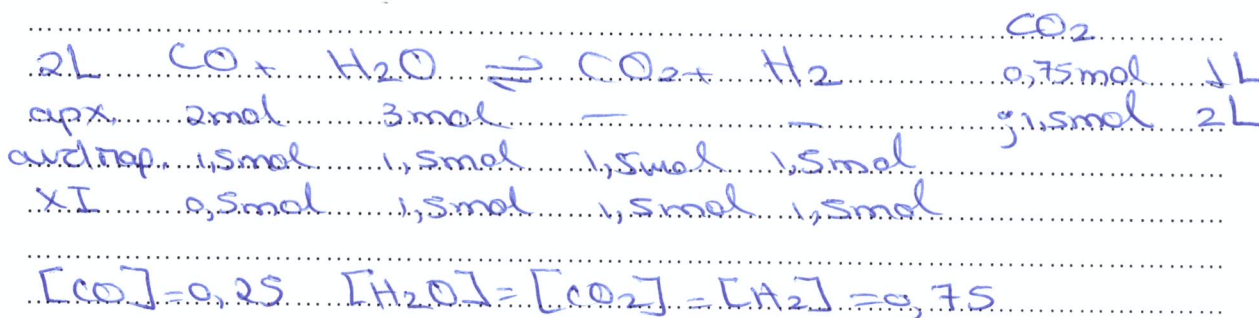 CO2
2L CO + H2O ⇌ CO2 + H2 0,75mol 1L
αρχ. 2mol 3mol — — ; 1,5mol 2L
αντ/παρ. 1,5mol 1,5mol 1,5mol 1,5mol
ΧΙ 0,5mol 1,5mol 1,5mol 1,5mol
[CO]=0,25 [H2O]=[CO2]=[H2]=0,75